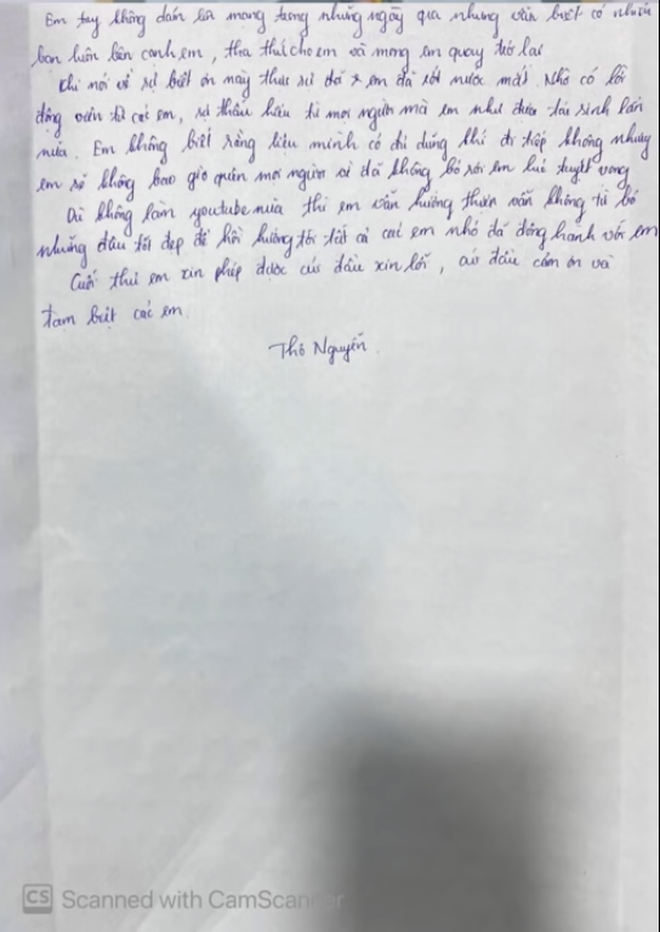 Em tuy không dám lên mạng trong những ngày qua nhưng vẫn biết có nhiều
bạn luôn bên cạnh em, tha thứ cho em và mong em quay trở lại
Khi nói về sự biết ơn này thực sự đã em đã rớt nước mắt. Nhờ có lời
động viên từ các em, sự thấu hiểu từ mọi người mà em như được tái sinh lần
nữa. Em không biết rằng liệu mình có đủ dũng khí đi tiếp không nhưng
em sẽ không bao giờ quên mọi người vì đã không bỏ rơi em lúc tuyệt vọng
Dù không làm youtube nữa thì em vẫn hướng thiện vẫn không từ bỏ
những điều tốt đẹp để hồi hướng tới tất cả các em nhỏ đã đồng hành với em
Cuối thư em xin phép được cúi đầu xin lỗi, cúi đầu cảm ơn và
tạm biệt các em.
Thơ Nguyễn.
CS Scanned with CamScanner